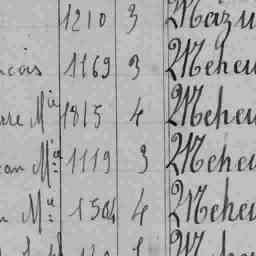 1210 3 Mazu
ncois 1169 3 Meheu
rre Mie 1815 4 Meheu
ean Mie 1119 3 Meheu
n Mie 1504 4 Meheu